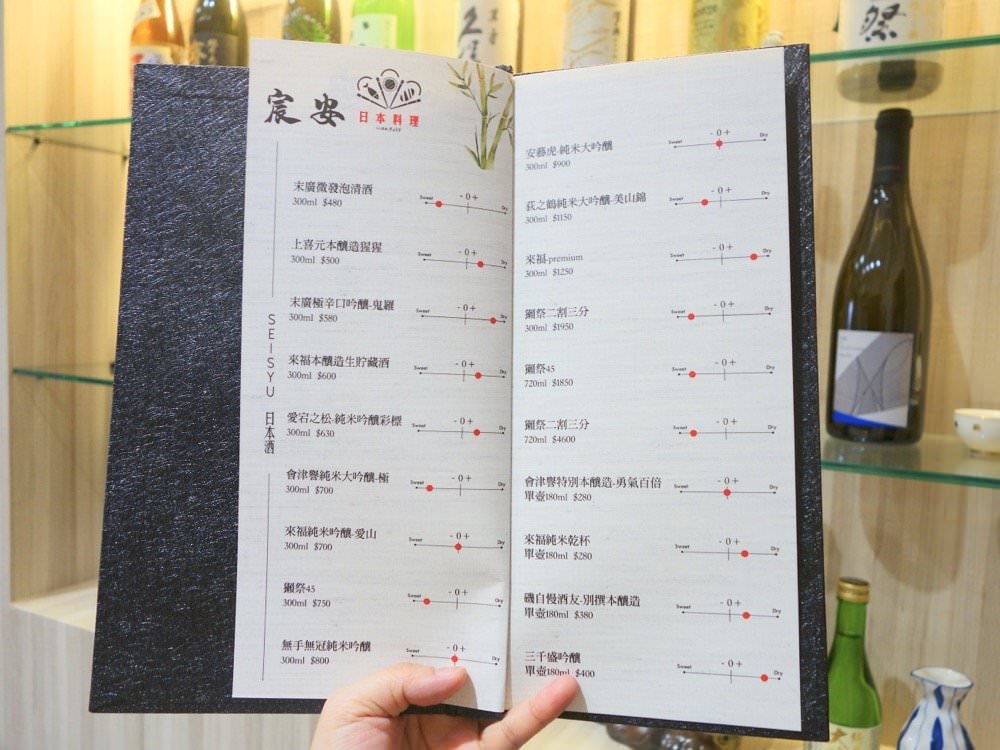 宸安
日本料理
SEISYU 日本酒
末廣微發泡清酒
300ml $480
Sweet - 0 + Dry
上喜元本釀造猩猩
300ml $500
Sweet - 0 + Dry
末廣極辛口吟釀-鬼羅
300ml $580
Sweet - 0 + Dry
來福本釀造生貯藏酒
300ml $600
Sweet - 0 + Dry
愛宕之松-純米吟釀彩標
300ml $630
Sweet - 0 + Dry
會津譽純米大吟釀-極
300ml $700
Sweet - 0 + Dry
來福純米吟釀-愛山
300ml $700
Sweet - 0 + Dry
獺祭45
300ml $750
Sweet - 0 + Dry
無手無冠純米吟釀
300ml $800
Sweet - 0 + Dry
安藝虎-純米大吟釀
300ml $900
Sweet - 0 + Dry
荻之鶴純米大吟釀-美山錦
300ml $1150
Sweet - 0 + Dry
來福-premium
300ml $1250
Sweet - 0 + Dry
獺祭二割三分
300ml $1950
Sweet - 0 + Dry
獺祭45
720ml $1850
Sweet - 0 + Dry
獺祭二割三分
720ml $4600
Sweet - 0 + Dry
會津譽特別本釀造-勇氣百倍
單壺180ml $280
Sweet - 0 + Dry
來福純米乾杯
單壺180ml $280
Sweet - 0 + Dry
磯自慢酒友-別撰本釀造
單壺180ml $380
Sweet - 0 + Dry
三千盛吟釀
單壺180ml $400
Sweet - 0 + Dry
祭